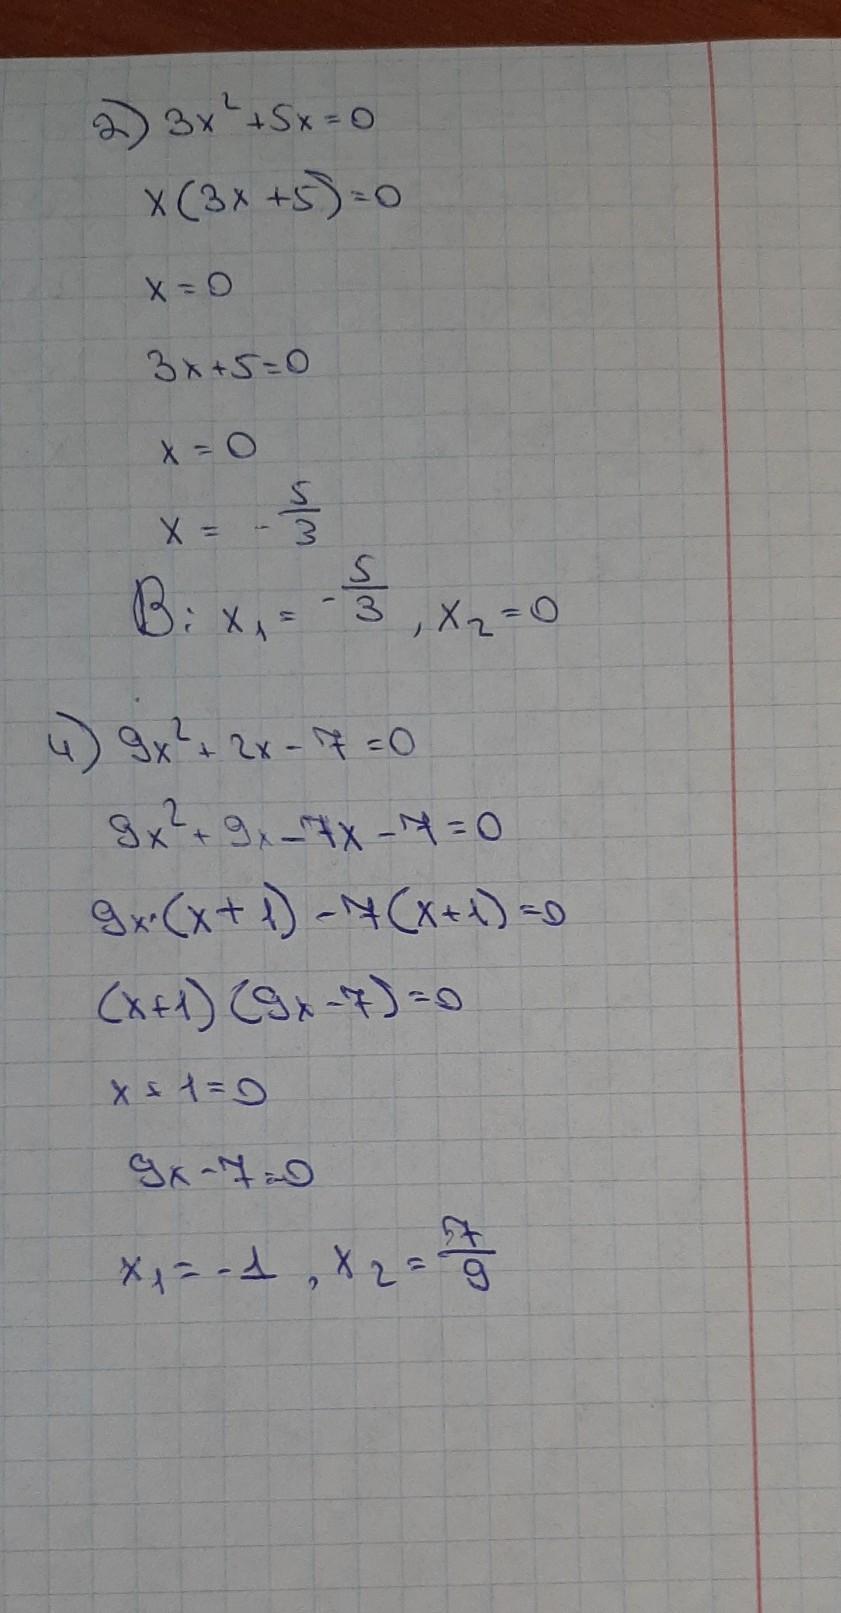 2) 3x² + 5x = 0
x(3x + 5) = 0
x = 0
3x + 5 = 0
x = 0
x = - 5/3
В: x₁ = - 5/3, x₂ = 0
4) 9x² + 2x - 7 = 0
9x² + 9x - 7x - 7 = 0
9x·(x + 1) - 7(x + 1) = 0
(x + 1) (9x - 7) = 0
x + 1 = 0
9x - 7 = 0
x₁ = - 1, x₂ = 7/9